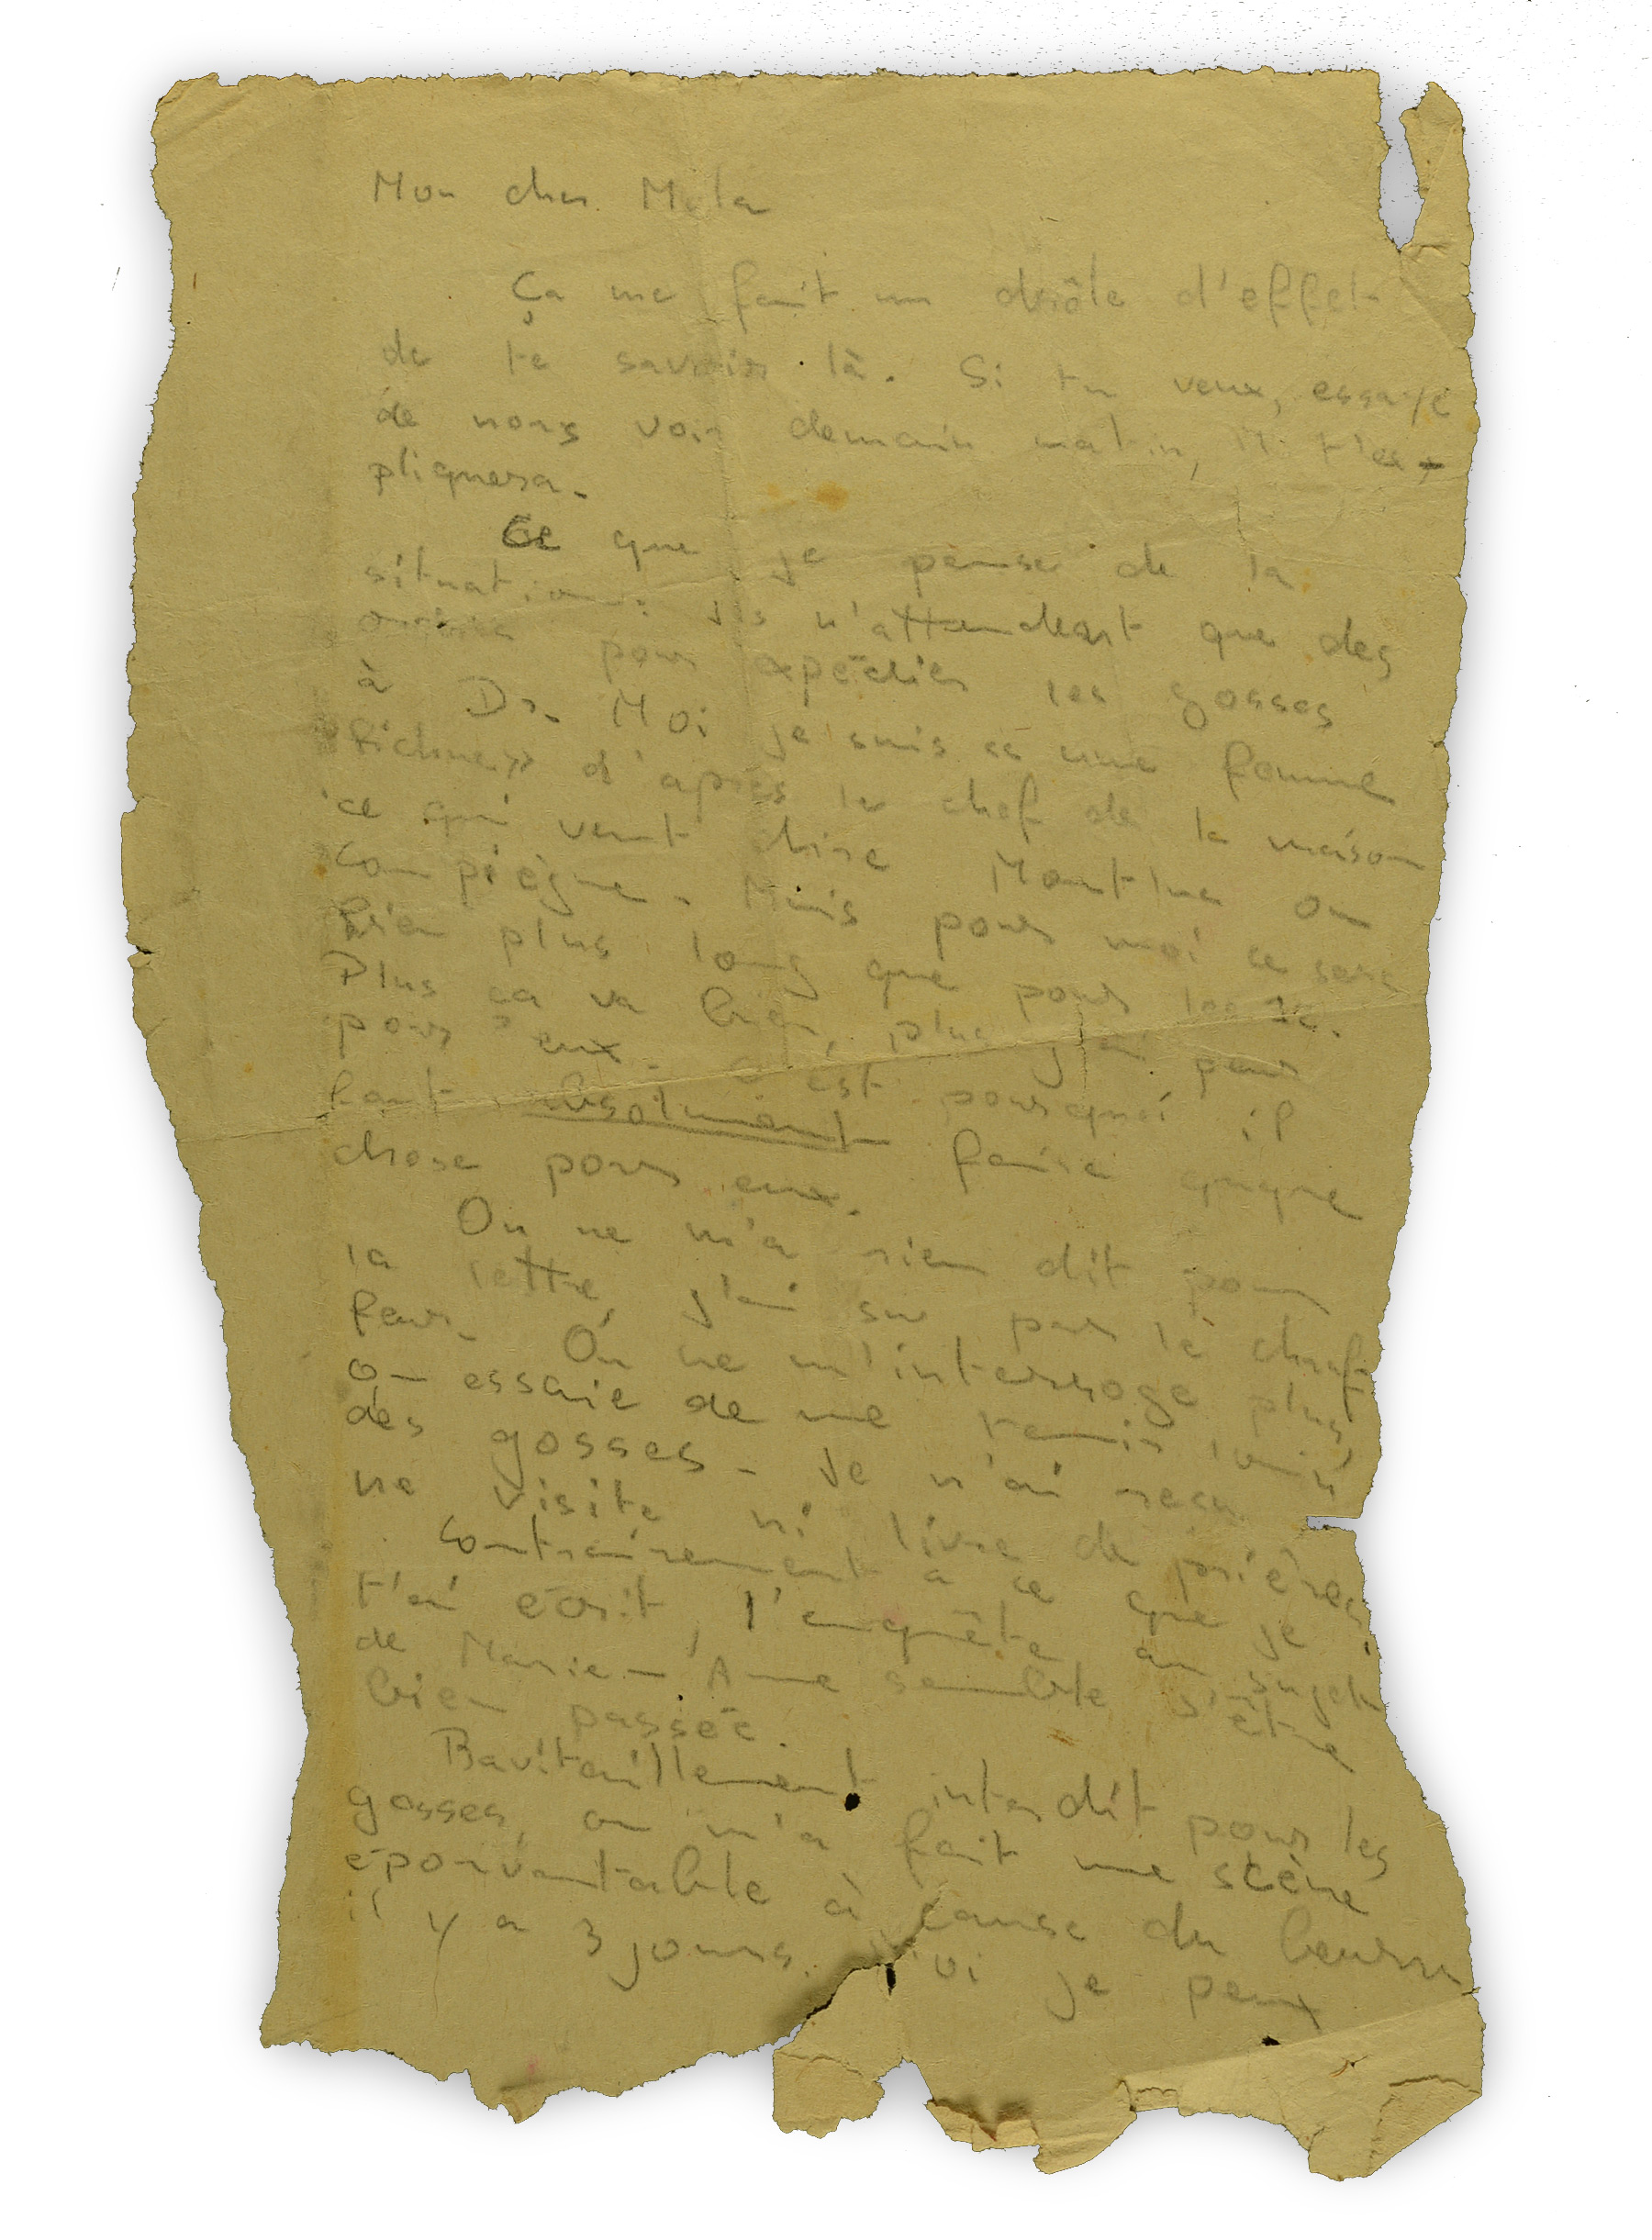 Mon cher Mola
Ça me fait un drôle d'effet
de te savoir là. Si tu veux, essaye
de nous voir demain matin, M t'ex-
pliquera.
Ce que je pense de la
situation : Ils n'attendent que des
ordres pour expédier les gosses
à Dr. Moi je suis « une femme
fichue » d'après le chef de la maison
ce qui veut dire Montluc ou
Compiègne. Mais pour moi ce sera
bien plus long que pour les
Plus ça va bien, plus j'ai peur
pour eux. C'est pourquoi il
faut absolument faire quque
chose pour eux.
On ne m'a rien dit pour
la lettre, j'ai su par le chef
On ne m'interroge plus,
on essaie de me tenir loin
des gosses. Je n'ai reçu
ne visite ni livre de prières.
Contrairement à ce que je
t'ai écrit, l'enquête au sujet
de Marie-Anne semble s'être
bien passée.
Ravitaillement interdit pour les
gosses, on m'a fait une scène
épouvantable à cause du beurre
il y a 3 jours. Moi je peux